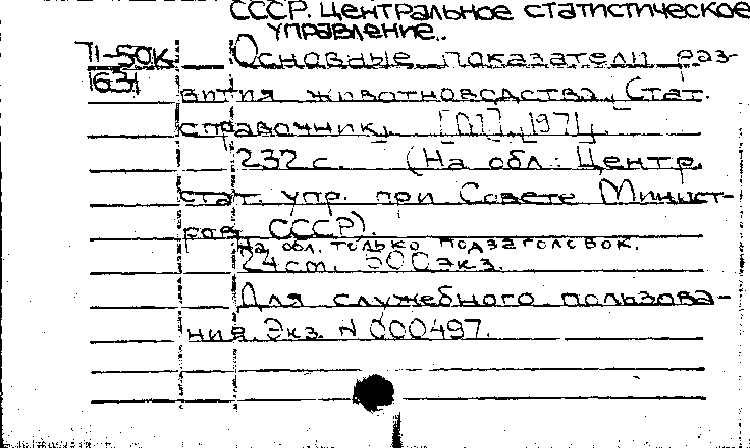 СССР. Центральное статистическое
управление.
П-50К Основные показатели раз-
631 вития животноводства. Стат.
справочник. [М], 1971.
232 с. (На обл.: Центр.
стат. упр. при Совете Минист-
ров СССР).
На обл. только подзаголовок.
24 см. 500 экз.
Для служебного пользова-
ния. Экз. N 000497.